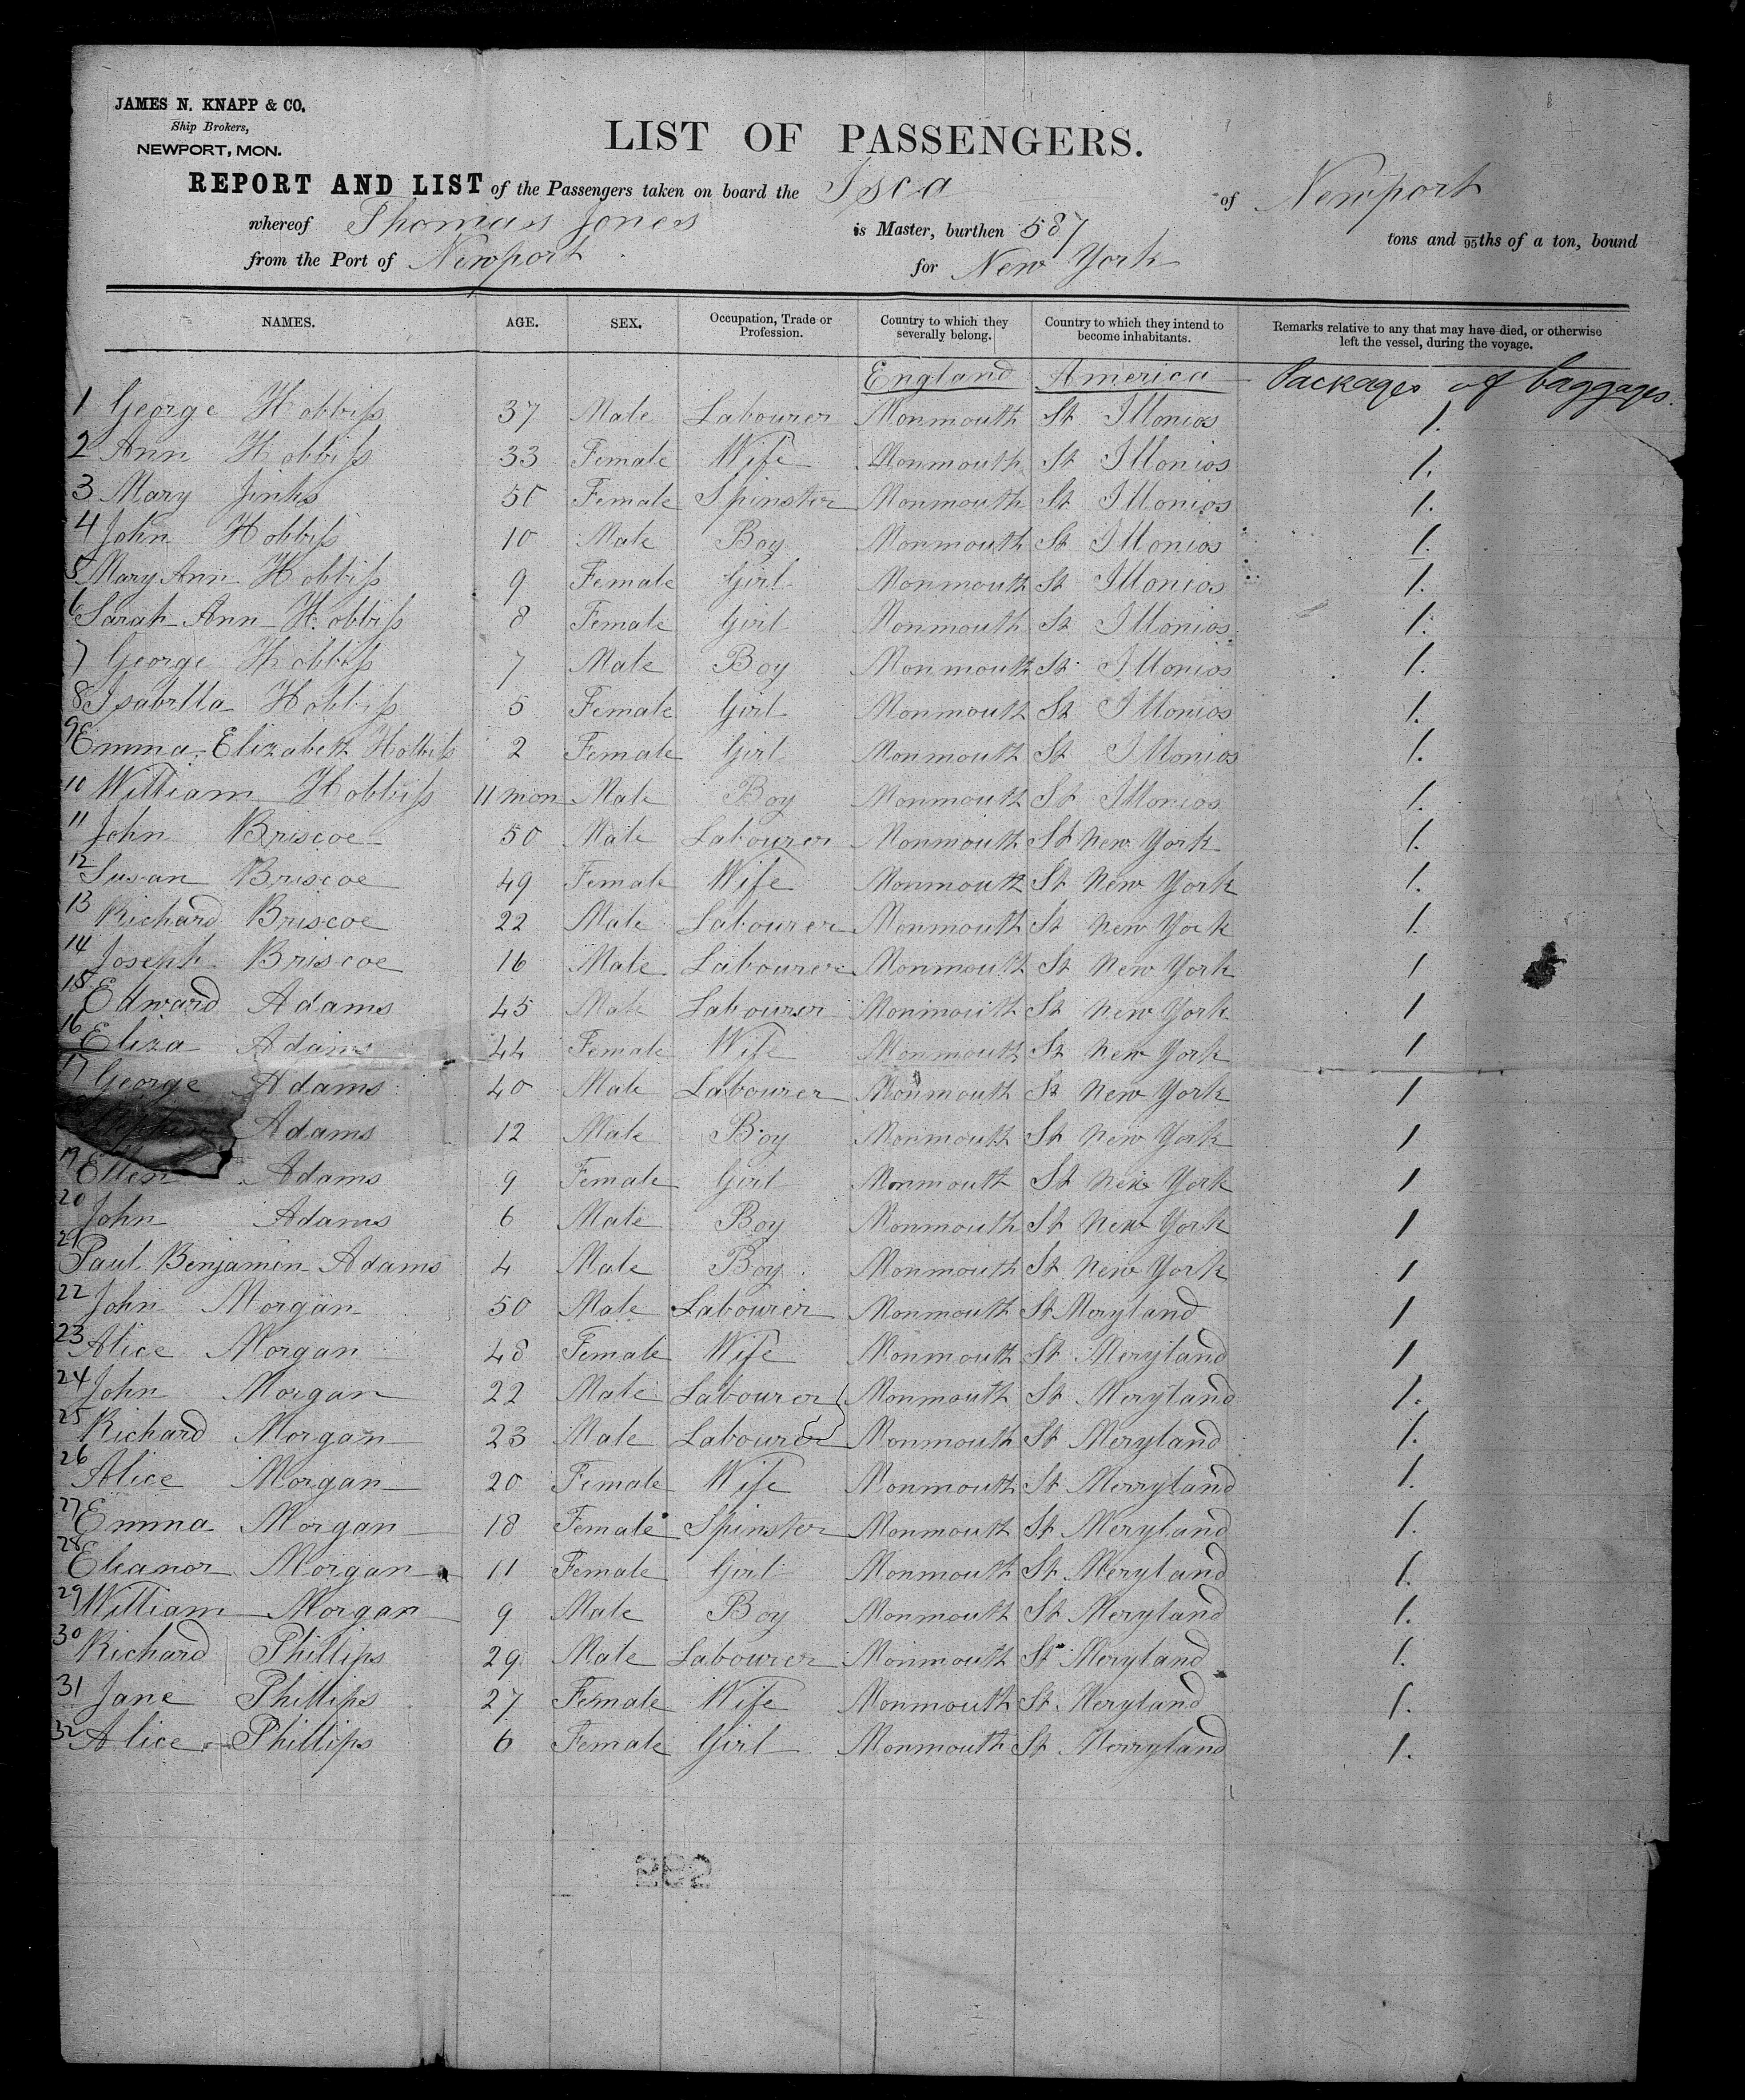 JAMES N. KNAPP & CO.
Ship Brokers,
NEWPORT, MON.
LIST OF PASSENGERS.
REPORT AND LIST of the Passengers taken on board the Isca of Newport
whereof Thomas Jones is Master, burthen 587 tons and /95ths of a ton, bound
from the Port of Newport for New York
NAMES. AGE. SEX. Occupation, Trade or Profession. Country to which they severally belong. Country to which they intend to become inhabitants. Remarks relative to any that may have died, or otherwise left the vessel, during the voyage.
England America Packages of baggages.
1 George Hobbiss 37 Male Labourer Monmouth St Illonios 1.
2 Ann Hobbiss 33 Female Wife Monmouth St Illonios 1.
3 Mary Jinks 50 Female Spinster Monmouth St Illonios 1.
4 John Hobbiss 10 Male Boy Monmouth St Illonios 1.
5 Mary Ann Hobbiss 9 Female Girl Monmouth St Illonios 1.
6 Sarah Ann Hobbiss 8 Female Girl Monmouth St Illonios 1.
7 George Hobbiss 7 Male Boy Monmouth St Illonios 1.
8 Isabella Hobbiss 5 Female Girl Monmouth St Illonios 1.
9 Emma Elizabeth Hobbiss 2 Female Girl Monmouth St Illonios 1.
10 William Hobbiss 11 mon Male Boy Monmouth St Illonios 1.
11 John Briscoe 50 Male Labourer Monmouth St New York 1.
12 Susan Briscoe 49 Female Wife Monmouth St New York 1.
13 Richard Briscoe 22 Male Labourer Monmouth St New York 1.
14 Joseph Briscoe 16 Male Labourer Monmouth St New York 1
15 Edward Adams 45 Male Labourer Monmouth St New York 1
16 Eliza Adams 44 Female Wife Monmouth St New York 1
17 George Adams 40 Male Labourer Monmouth St New York 1
Adams 12 Male Boy Monmouth St New York 1
19 Ellen Adams 9 Female Girl Monmouth St New York 1
20 John Adams 6 Male Boy Monmouth St New York 1
21 Paul Benjamin Adams 4 Male Boy Monmouth St New York 1
22 John Morgan 50 Male Labourer Monmouth St Meryland 1
23 Alice Morgan 48 Female Wife Monmouth St Meryland 1
24 John Morgan 22 Male Labourer Monmouth St Meryland 1.
25 Richard Morgan 23 Male Labourer Monmouth St Meryland 1.
26 Alice Morgan 20 Female Wife Monmouth St Merryland 1.
27 Emma Morgan 18 Female Spinster Monmouth St Meryland 1.
28 Eleanor Morgan 11 Female Girl Monmouth St Meryland 1.
29 William Morgan 9 Male Boy Monmouth St Meryland 1.
30 Richard Phillips 29 Male Labourer Monmouth St Meryland 1.
31 Jane Phillips 27 Female Wife Monmouth St Meryland 1.
32 Alice Phillips 6 Female Girl Monmouth St Merryland 1.